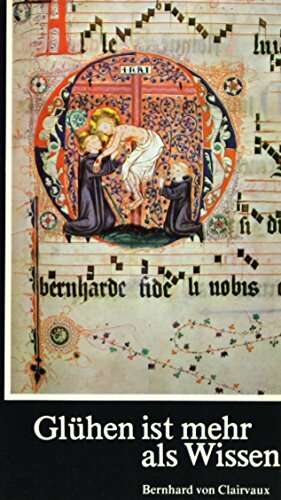 le
INRI
li di
bernharde fide li nobis
Glühen ist mehr
als Wissen
Bernhard von Clairvaux